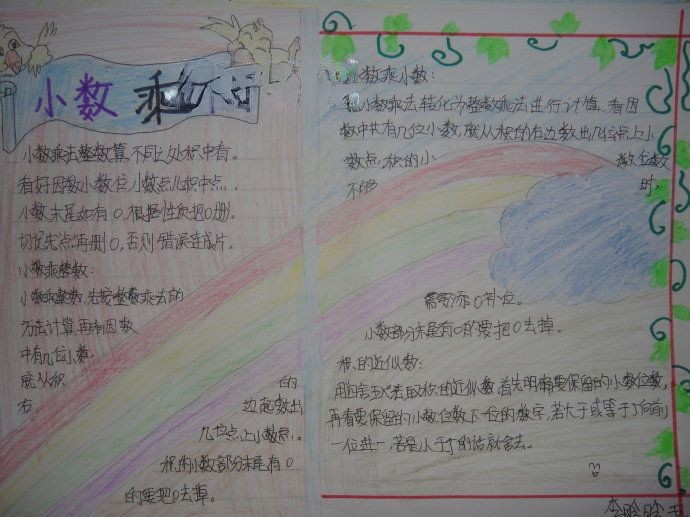 小数乘
小数乘法整数算,不同之处积中看。
看好因数小数位,小数点儿积中点。
小数末尾如有0,根据性质把0删。
切记先点再删0,否则错误连成片。
小数乘整数:
小数乘整数,先按整数乘法的
方法计算,再看因数
中有几位小数,
就从积的
右边起数出
几位点上小数点。
积的小数部分末尾有0
的要把0去掉。
小数乘小数:
把小数乘法转化为整数乘法进行计算。看因
数中共有几位小数,就从积的右边数出几位点上小
数点,积的小数位数
不够时,
需要添0补位。
小数部分末尾有0的要把0去掉。
积的近似数:
用四舍五入法取积的近似数。首先明确需要保留的小数位数,
再看要保留的小数位数下一位的数字,若大于或等于5向前
一位进一,若是小于5的话就舍去。